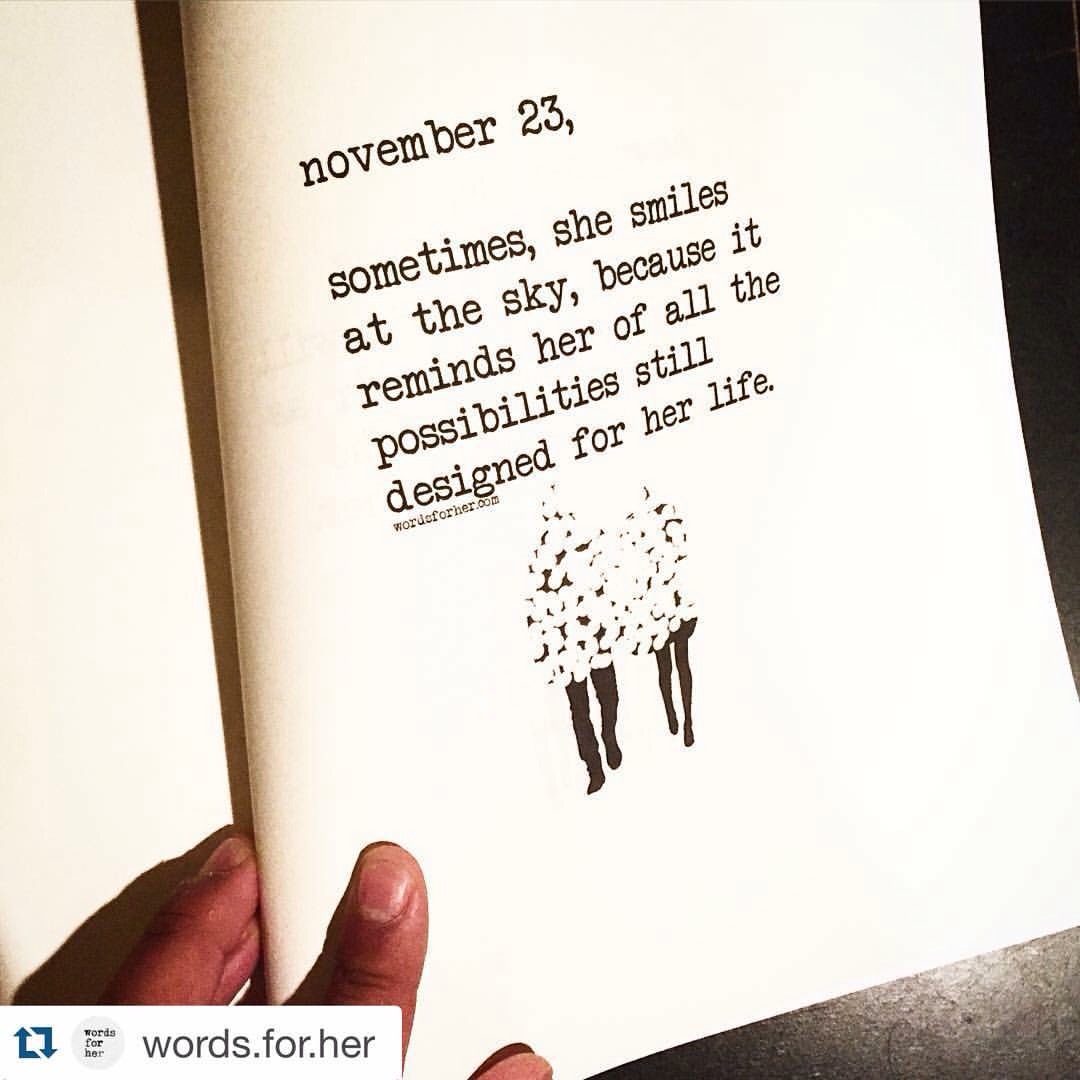 november 23,
sometimes, she smiles
at the sky, because it
reminds her of all the
possibilities still
designed for her life.
wordsforher.com
words
for
her
words.for.her